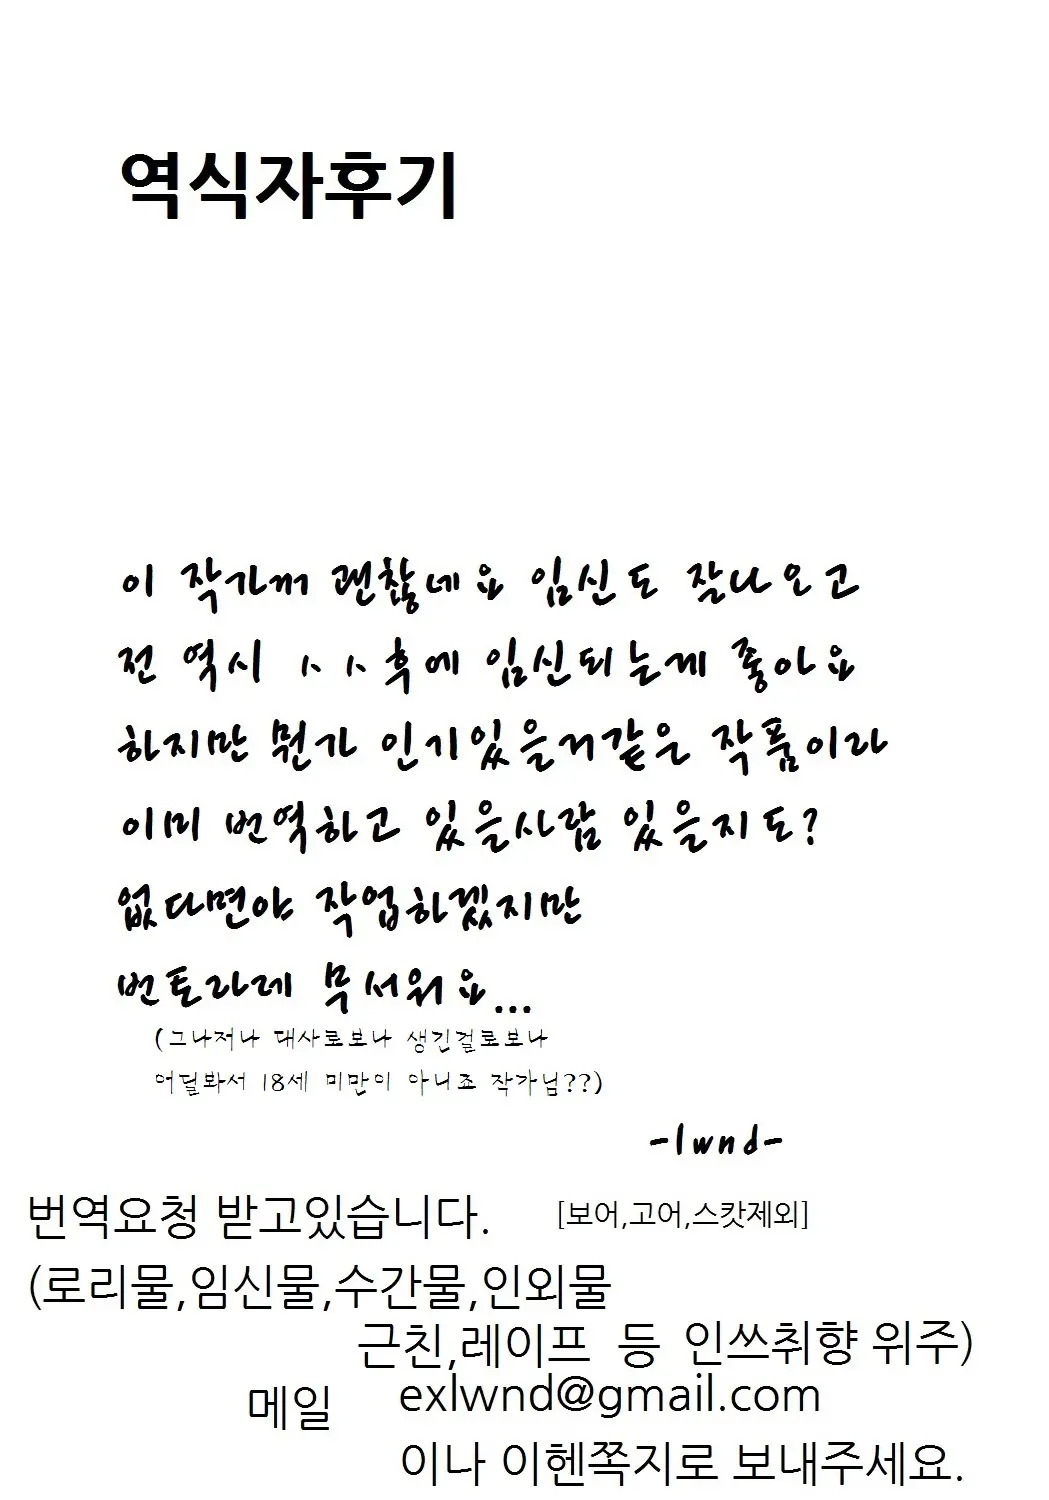 역식자후기
이 작가꺼 괜찮네요 임신도 잘나오고
전 역시 ㅅㅅ후에 임신되는게 좋아요
하지만 뭔가 인기있을거같은 작품이라
이미 번역하고 있을사람 있을지도?
없다면야 작업하겠지만
번토라레 무서워요...
(그나저나 대사로보나 생긴걸로보나
어딜봐서 18세 미만이 아니죠 작가님??)
-lwnd-
번역요청 받고있습니다. [보어,고어,스캇제외]
(로리물,임신물,수간물,인외물
근친,레이프 등 인쓰취향 위주)
메일 exlwnd@gmail.com
이나 이헨쪽지로 보내주세요.